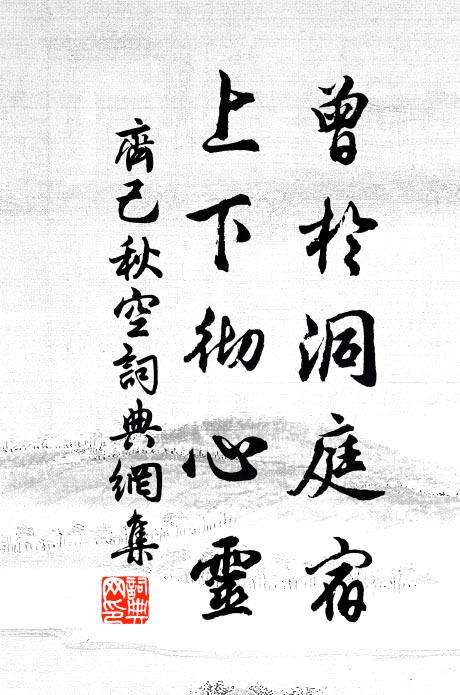 曾於洞庭宿
上下彻心靈
齊己秋空詞典網集
詞典
网印